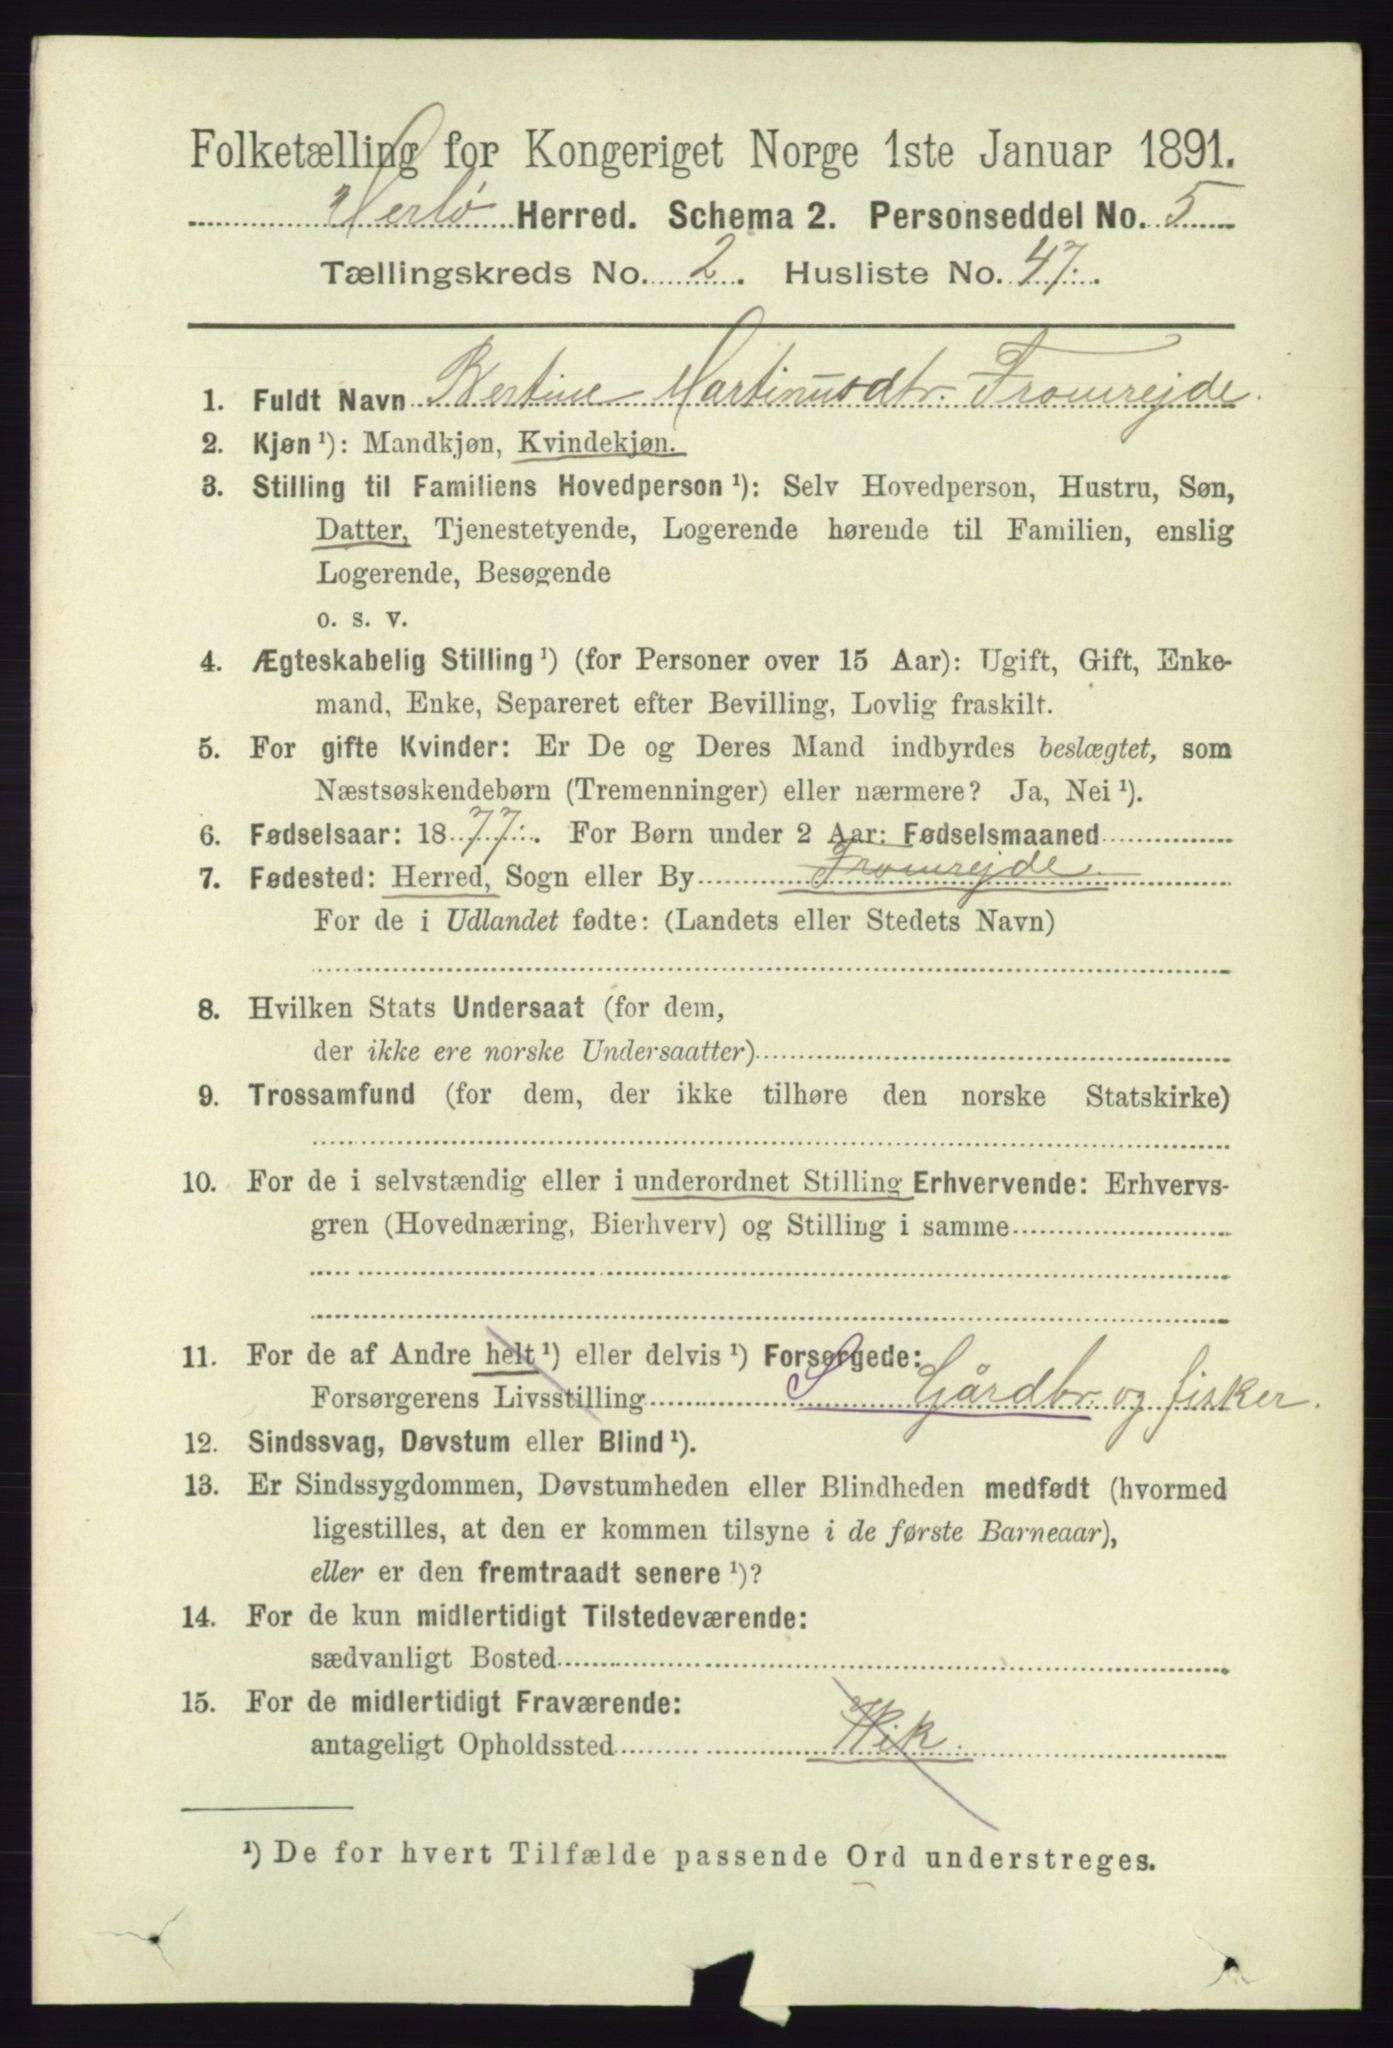 Folketælling for Kongeriget Norge 1ste Januar 1891.
Herlø Herred. Schema 2. Personseddel No. 5
Tællingskreds No. 2. Husliste No. 47.
1. Fuldt Navn Bertine Martinusdtr. Fromrejde.
2. Kjøn ¹): Mandkjøn, Kvindekjøn.
3. Stilling til Familiens Hovedperson ¹): Selv Hovedperson, Hustru, Søn,
Datter, Tjenestetyende, Logerende hørende til Familien, enslig
Logerende, Besøgende
o. s. v.
4. Ægteskabelig Stilling ¹) (for Personer over 15 Aar): Ugift, Gift, Enke-
mand, Enke, Separeret efter Bevilling, Lovlig fraskilt.
5. For gifte Kvinder: Er De og Deres Mand indbyrdes beslægtet, som
Næstsøskendebørn (Tremenninger) eller nærmere? Ja, Nei ¹).
6. Fødselsaar: 1877. For Børn under 2 Aar: Fødselsmaaned
7. Fødested: Herred, Sogn eller By Fromrejde.
For de i Udlandet fødte: (Landets eller Stedets Navn)
8. Hvilken Stats Undersaat (for dem,
der ikke ere norske Undersaatter)
9. Trossamfund (for dem, der ikke tilhøre den norske Statskirke)
10. For de i selvstændig eller i underordnet Stilling Erhvervende: Erhvervs-
gren (Hovednæring, Bierhverv) og Stilling i samme
11. For de af Andre helt ¹) eller delvis ¹) Forsørgede:
Forsørgerens Livsstilling S Gårdbr. og fisker.
12. Sindssvag, Døvstum eller Blind ¹).
13. Er Sindssygdommen, Døvstumheden eller Blindheden medfødt (hvormed
ligestilles, at den er kommen tilsyne i de første Barneaar),
eller er den fremtraadt senere ¹)?
14. For de kun midlertidigt Tilstedeværende:
sædvanligt Bosted
15. For de midlertidigt Fraværende:
antageligt Opholdssted Wik.
¹) De for hvert Tilfælde passende Ord understreges.